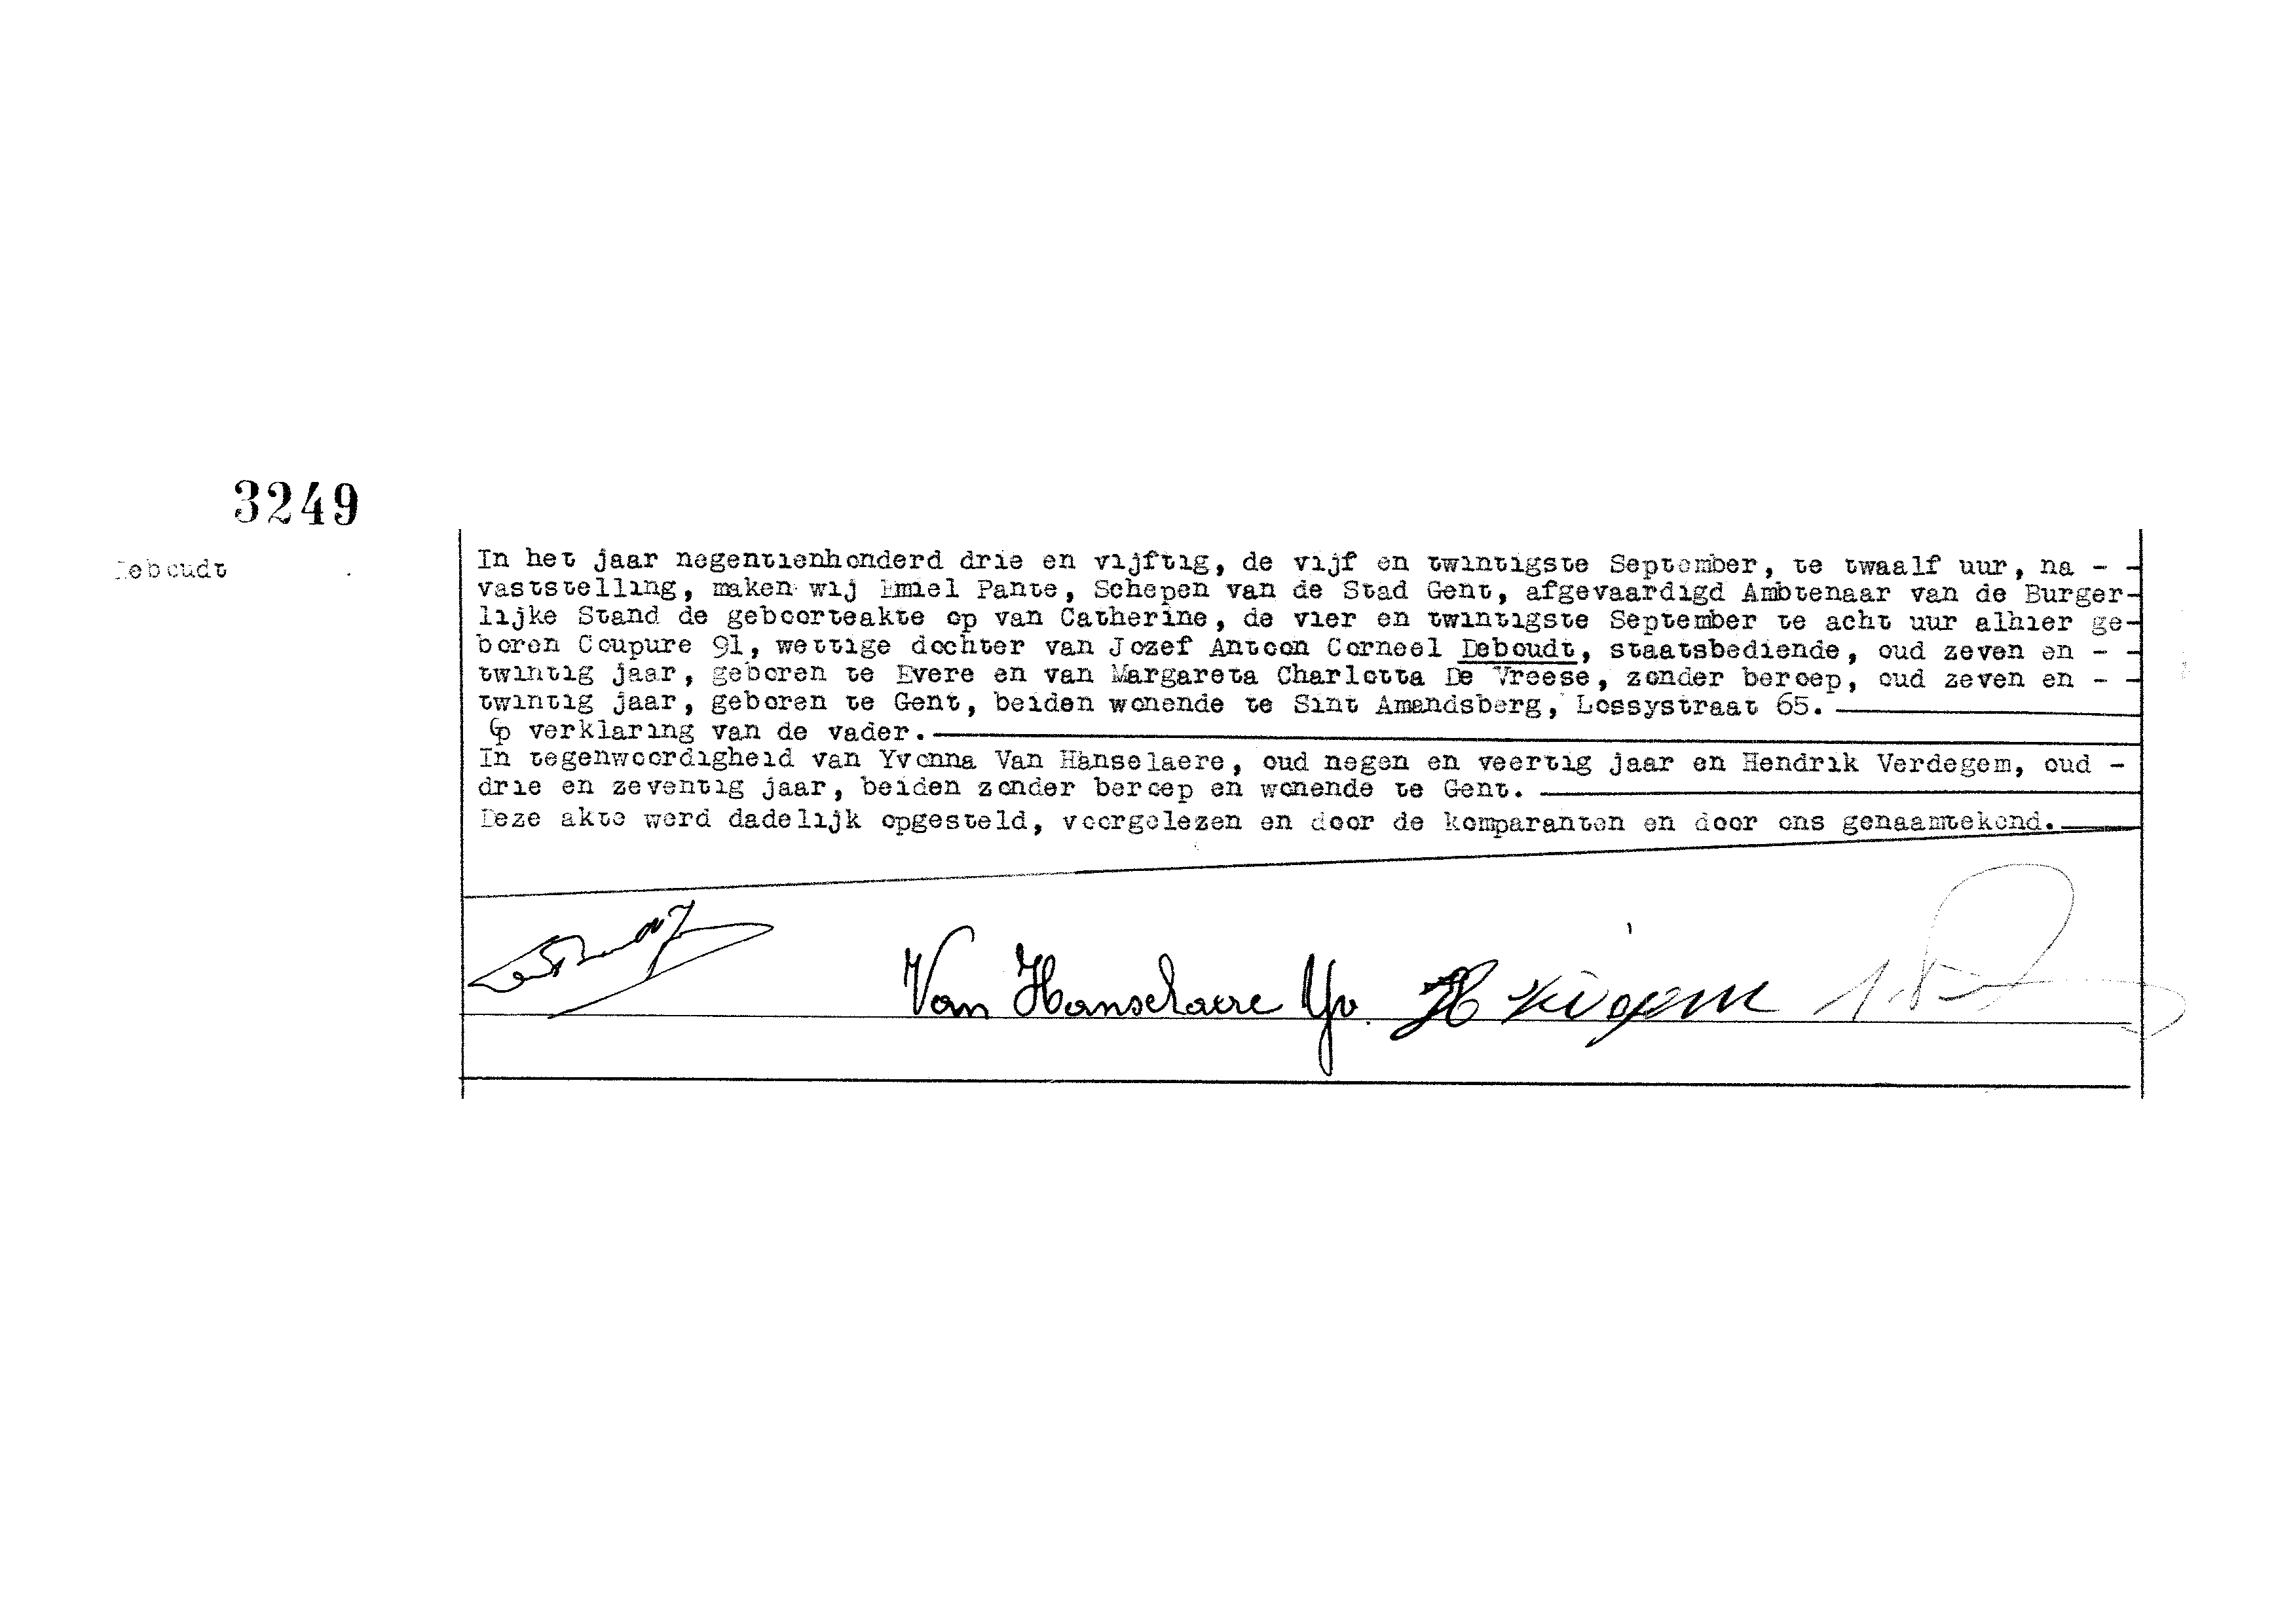 3249
Deboudt
In het jaar negentienhonderd drie en vijftig, de vijf en twintigste September, te twaalf uur, na - -
vaststelling, maken wij Emiel Pante, Schepen van de Stad Gent, afgevaardigd Ambtenaar van de Burger-
lijke Stand de geboorteakte op van Catherine, de vier en twintigste September te acht uur alhier ge-
boren Coupure 91, wettige dochter van Jozef Antoon Corneel Deboudt, staatsbediende, oud zeven en - -
twintig jaar, geboren te Evere en van Margareta Charlotta De Vreese, zonder beroep, oud zeven en - -
twintig jaar, geboren te Gent, beiden wonende te Sint Amandsberg, Lossystraat 65.
Op verklaring van de vader.
In tegenwoordigheid van Yvonna Van Hanselaere, oud negen en veertig jaar en Hendrik Verdegem, oud -
drie en zeventig jaar, beiden zonder beroep en wonende te Gent.
Deze akte werd dadelijk opgesteld, voorgelezen en door de komparanten en door ons genaamtekend.
Van Hanselaere Yv.